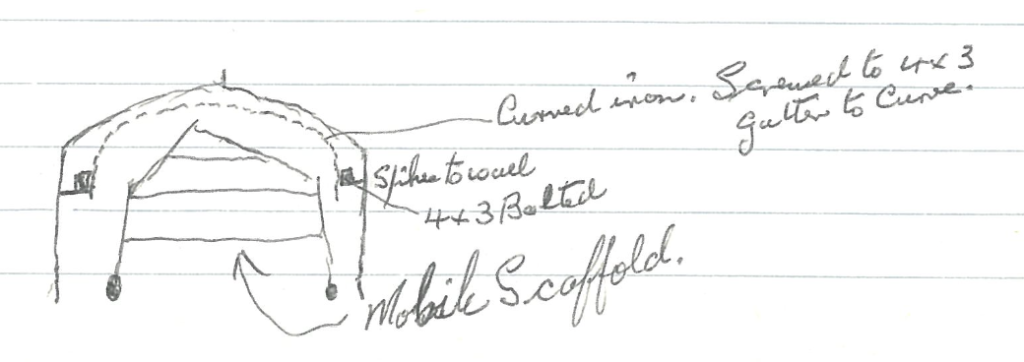 Curved iron. Screwed to 4x3
gutter to Curve.
Spikes to wall
4x3 Bolted
Mobile Scaffold.